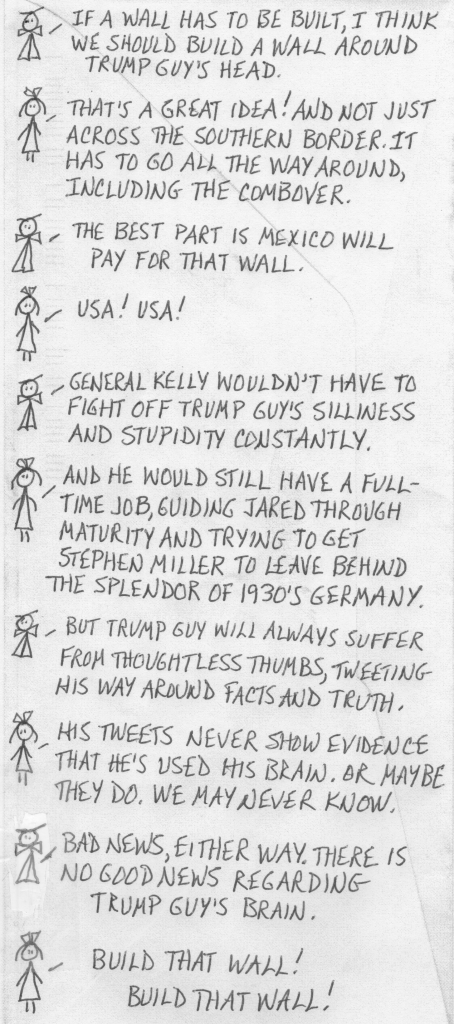 IF A WALL HAS TO BE BUILT, I THINK
WE SHOULD BUILD A WALL AROUND
TRUMP GUY'S HEAD.
THAT'S A GREAT IDEA! AND NOT JUST
ACROSS THE SOUTHERN BORDER. IT
HAS TO GO ALL THE WAY AROUND,
INCLUDING THE COMBOVER.
THE BEST PART IS MEXICO WILL
PAY FOR THAT WALL.
USA! USA!
GENERAL KELLY WOULDN'T HAVE TO
FIGHT OFF TRUMP GUY'S SILLINESS
AND STUPIDITY CONSTANTLY.
AND HE WOULD STILL HAVE A FULL-
TIME JOB, GUIDING JARED THROUGH
MATURITY AND TRYING TO GET
STEPHEN MILLER TO LEAVE BEHIND
THE SPLENDOR OF 1930'S GERMANY.
BUT TRUMP GUY WILL ALWAYS SUFFER
FROM THOUGHTLESS THUMBS, TWEETING
HIS WAY AROUND FACTS AND TRUTH.
HIS TWEETS NEVER SHOW EVIDENCE
THAT HE'S USED HIS BRAIN. OR MAYBE
THEY DO. WE MAY NEVER KNOW.
BAD NEWS, EITHER WAY. THERE IS
NO GOOD NEWS REGARDING
TRUMP GUY'S BRAIN.
BUILD THAT WALL!
BUILD THAT WALL!